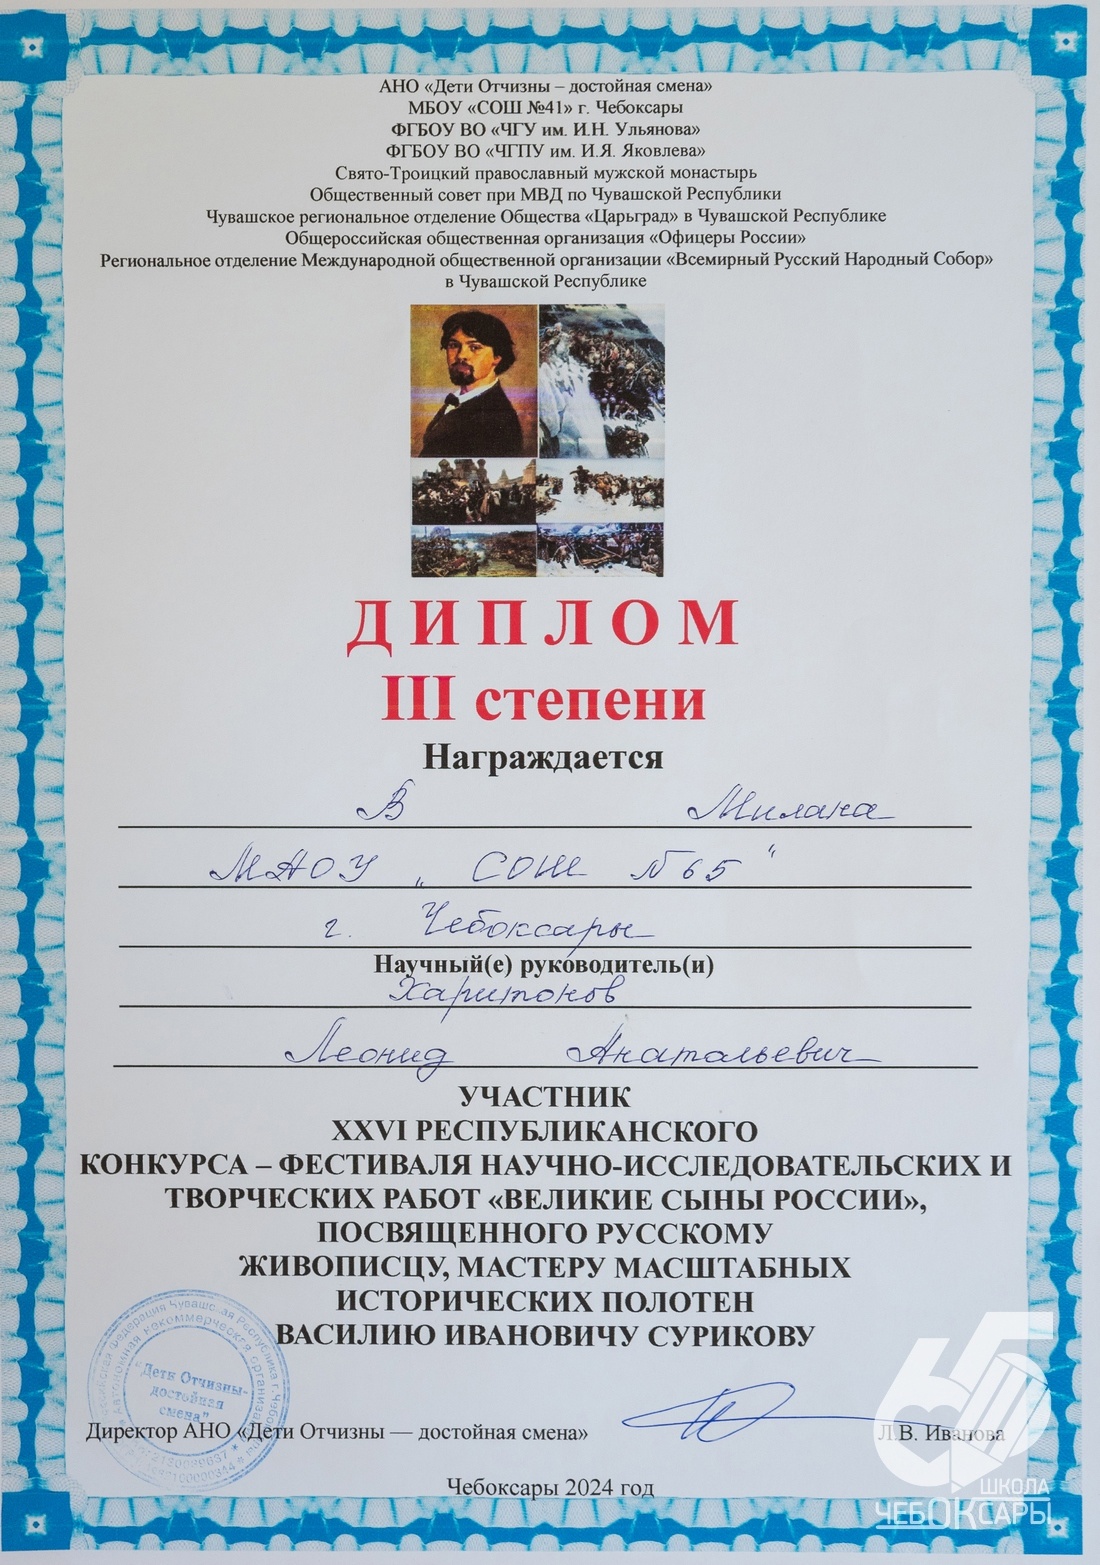 АНО «Дети Отчизны – достойная смена»
МБОУ «СОШ №41» г. Чебоксары
ФГБОУ ВО «ЧГУ им. И.Н. Ульянова»
ФГБОУ ВО «ЧГПУ им. И.Я. Яковлева»
Свято-Троицкий православный мужской монастырь
Общественный совет при МВД по Чувашской Республики
Чувашское региональное отделение Общества «Царьград» в Чувашской Республике
Общероссийская общественная организация «Офицеры России»
Региональное отделение Международной общественной организации «Всемирный Русский Народный Собор»
в Чувашской Республике
ДИПЛОМ
III степени
Награждается
В Милана
МАОУ „ СОШ №65 "
г. Чебоксары
Научный(е) руководитель(и)
Харитонов
Леонид Анатольевич
УЧАСТНИК
XXVI РЕСПУБЛИКАНСКОГО
КОНКУРСА – ФЕСТИВАЛЯ НАУЧНО-ИССЛЕДОВАТЕЛЬСКИХ И
ТВОРЧЕСКИХ РАБОТ «ВЕЛИКИЕ СЫНЫ РОССИИ»,
ПОСВЯЩЕННОГО РУССКОМУ
ЖИВОПИСЦУ, МАСТЕРУ МАСШТАБНЫХ
ИСТОРИЧЕСКИХ ПОЛОТЕН
ВАСИЛИЮ ИВАНОВИЧУ СУРИКОВУ
"Дети Отчизны-
достойная
смена"
Директор АНО «Дети Отчизны — достойная смена» Л.В. Иванова
Чебоксары 2024 год
65
ШКОЛА
ЧЕБОКСАРЫ